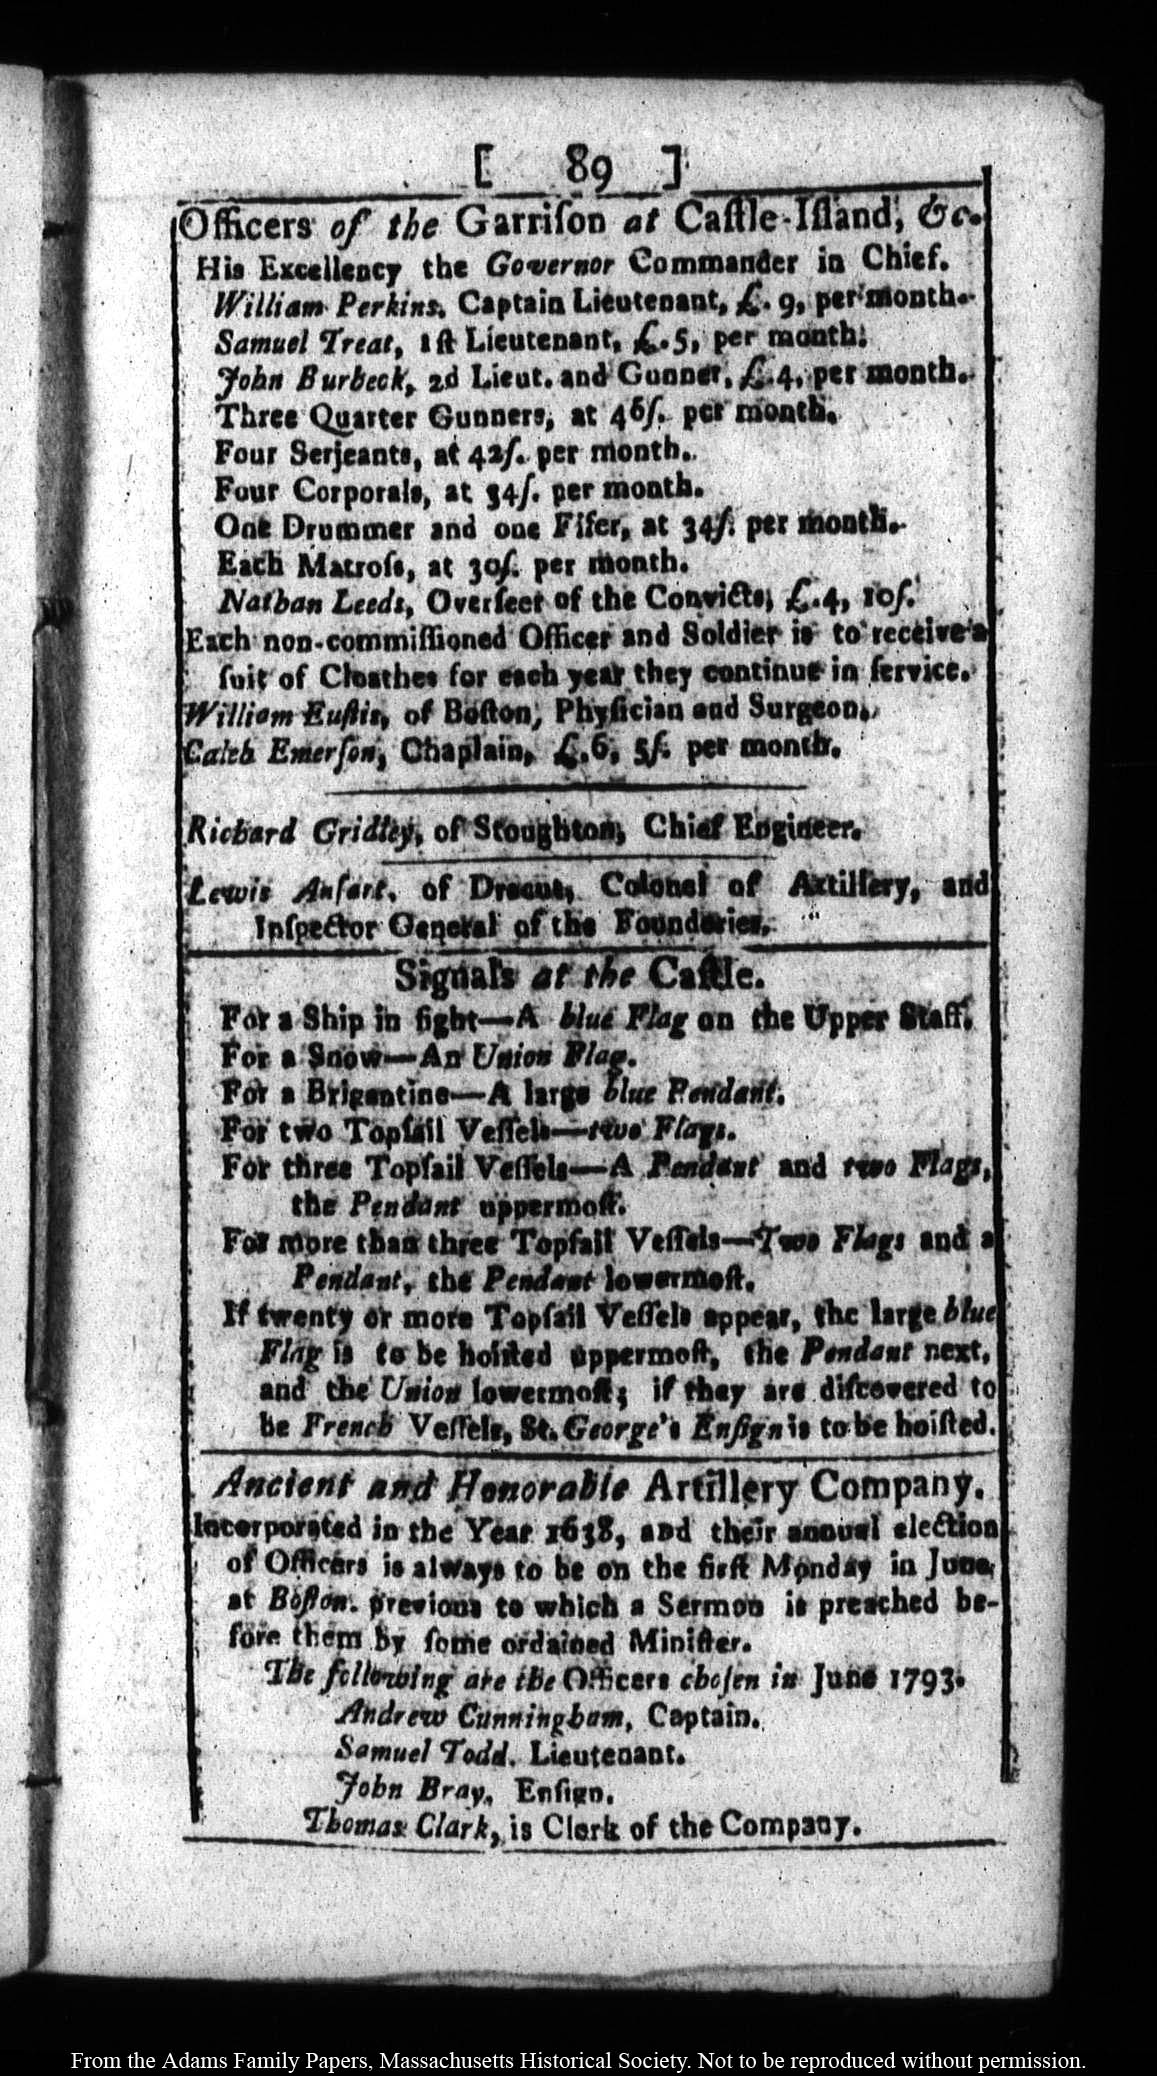 [ 89 ]
Officers of the Garriſon at Caſtle-Iſland, &c.
His Excellency the Governor Commander in Chief.
William Perkins, Captain Lieutenant, £. 9, per month.
Samuel Treat, 1ſt Lieutenant, £. 5, per month.
John Burbeck, 2d Lieut. and Gunner, £. 4, per month.
Three Quarter Gunners, at 46ſ. per month.
Four Serjeants, at 42ſ. per month.
Four Corporals, at 34ſ. per month.
One Drummer and one Fifer, at 34ſ. per month.
Each Matroſs, at 30ſ. per month.
Nathan Leeds, Overſeer of the Convicts, £.4, 10ſ.
Each non-commiſſioned Officer and Soldier is to receive a
ſuit of Cloathes for each year they continue in ſervice.
William Euſtis, of Boſton, Phyſician and Surgeon.
Caleb Emerſon, Chaplain, £.6, 5ſ. per month.
Richard Gridley, of Stoughton, Chief Engineer.
Lewis Anſart, of Dracut, Colonel of Artillery, and
Inſpector General of the Founderies.
Signals at the Caſtle.
For a Ship in ſight—A blue Flag on the Upper Staff.
For a Snow—An Union Flag.
For a Brigantine—A large blue Pendant.
For two Topſail Veſſels—two Flags.
For three Topſail Veſſels—A Pendant and two Flags,
the Pendant uppermoſt.
For more than three Topſail Veſſels—Two Flags and a
Pendant, the Pendant lowermoſt.
If twenty or more Topſail Veſſels appear, the large blue
Flag is to be hoiſted uppermoſt, the Pendant next,
and the Union lowermoſt; if they are diſcovered to
be French Veſſels, St. George's Enſign is to be hoiſted.
Ancient and Honorable Artillery Company.
Incorporated in the Year 1638, and their annual election
of Officers is always to be on the firſt Monday in June,
at Boſton. previous to which a Sermon is preached be-
fore them by ſome ordained Miniſter.
The following are the Officers choſen in June 1793.
Andrew Cunningham, Captain.
Samuel Todd, Lieutenant.
John Bray, Enſign.
Thomas Clark, is Clerk of the Company.
From the Adams Family Papers, Massachusetts Historical Society. Not to be reproduced without permission.